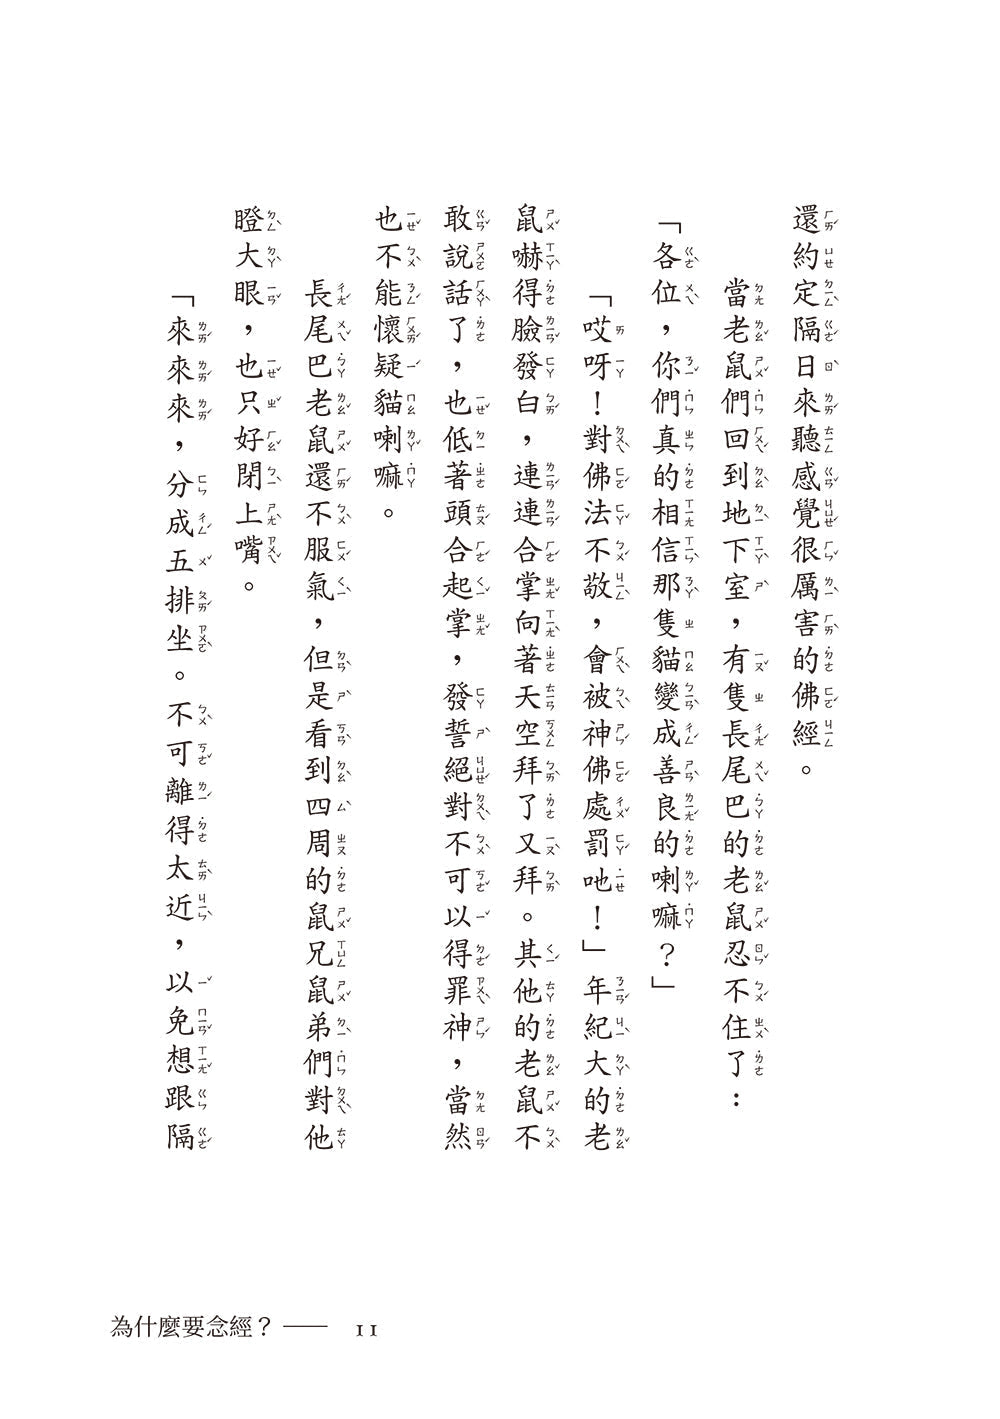 還約定隔日來聽感覺很厲害的佛經。
當老鼠們回到地下室，有隻長尾巴的老鼠忍不住了：
「各位，你們真的相信那隻貓變成善良的喇嘛？」
「哎呀！對佛法不敬，會被神佛處罰吔！」年紀大的老
鼠嚇得臉發白，連連合掌向著天空拜了又拜。其他的老鼠不
敢說話了，也低著頭合起掌，發誓絕對不可以得罪神，當然
也不能懷疑貓喇嘛。
長尾巴老鼠還不服氣，但是看到四周的鼠兄鼠弟們對他
瞪大眼，也只好閉上嘴。
「來來來，分成五排坐。不可離得太近，以免想跟隔
為什麼要念經？—— 11